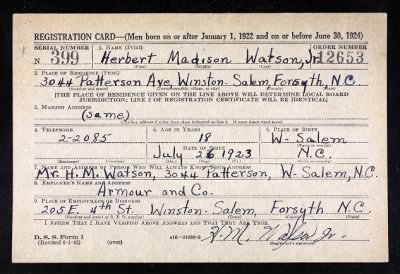 REGISTRATION CARD—(Men born on or after January 1, 1922 and on or before June 30, 1924)
SERIAL NUMBER 1. NAME (Print) ORDER NUMBER
N 399 Herbert Madison Watson, Jr. 12653
2. PLACE OF RESIDENCE (Print)
3044 Patterson Ave, Winston-Salem, Forsyth, N.C.
[THE PLACE OF RESIDENCE GIVEN ON THE LINE ABOVE WILL DETERMINE LOCAL BOARD
JURISDICTION; LINE 2 OF REGISTRATION CERTIFICATE WILL BE IDENTICAL]
3. MAILING ADDRESS
(same)
4. TELEPHONE 5. AGE IN YEARS 6. PLACE OF BIRTH
2-2085 18 W-Salem
DATE OF BIRTH
July 26 1923 N.C.
7. NAME AND ADDRESS OF PERSON WHO WILL ALWAYS KNOW YOUR ADDRESS
Mr. H.M. Watson, 3044 Patterson, W-Salem, N.C.
8. EMPLOYER'S NAME AND ADDRESS
Armour and Co.
9. PLACE OF EMPLOYMENT OR BUSINESS
205 E. 4th St. Winston-Salem, Forsyth N.C.
I AFFIRM THAT I HAVE VERIFIED ABOVE ANSWERS AND THAT THEY ARE TRUE.
D. S. S. Form 1 H.M. Watson Jr.